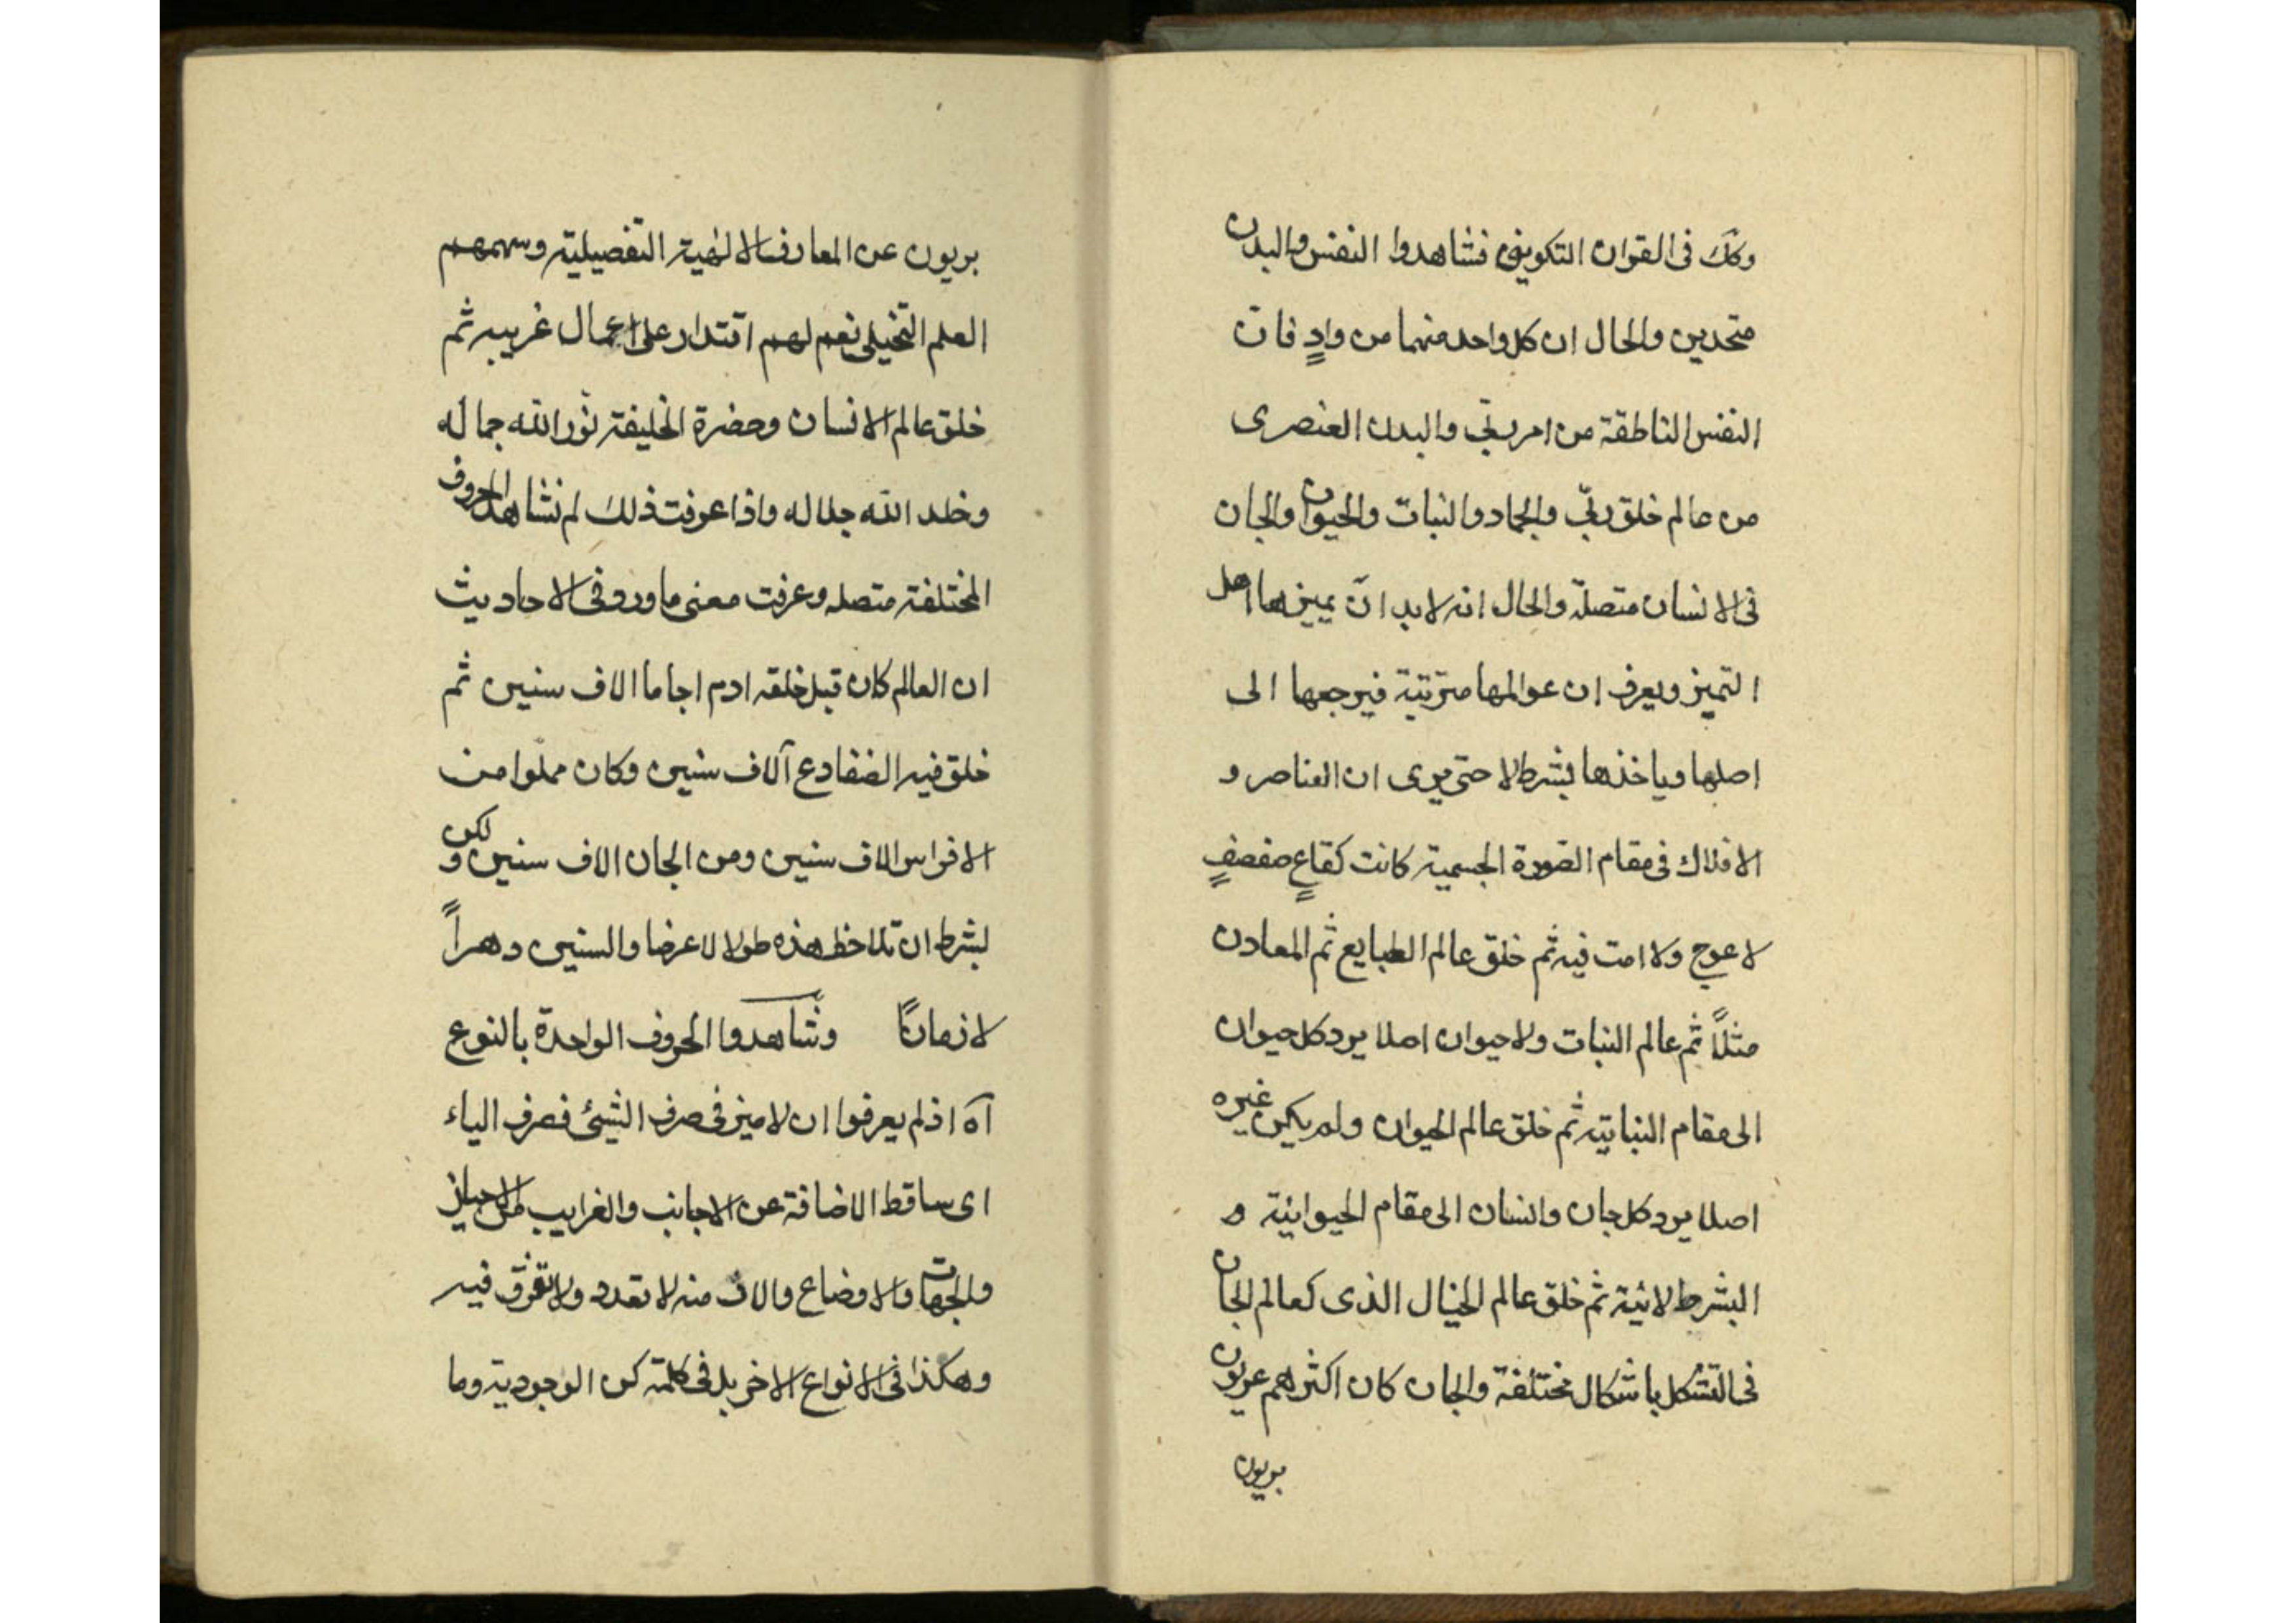 وكك فى القران التكوينى فشاهدوا النفس والبدن
متحدين والحال ان كل واحد منهما من وادٍ فان
النفس الناطقة من امر ربّى والبدن العنصرى
من عالم خلق ربّى والجماد والنبات والحيوان والجان
فى الانسان متصلة والحال انه لابد ان يميزها اهل
التميز ويعرف ان عوالمها مترتبة فيرجعها الى
اصلها وياخذها بشرط لا حتى يرى ان العناصر و
الافلاك فى مقام الصورة الجسمية كانت كقاعٍ صفصفٍ
لا عوج ولا امت فيه ثم خلق عالم الطبايع ثم المعادن
مثلاً ثم عالم النبات ولا حيوان اصلا يرد كل حيوان
الى مقام النباتية ثم خلق عالم الحيوان ولم يكن غيره
اصلا يرد كل جان وانسان الى مقام الحيوانية و
البشرط لائية ثم خلق عالم الخيال الذى كعالم الجان
فى التشكل باشكال مختلفة والجان كان اكثرهم عريون
بريون
بريون عن المعارف الالهية التفصيلية وسهمهم
العلم التخيلى نعم لهم اقتدار على اعمال غريبه ثم
خلق عالم الانسان وحضرة الخليفة نوّر الله جماله
وخلد الله جلاله واذا عرفت ذلك لم نشاهد الحروف
المختلفة متصله وعرفت معنى ما ورد فى الاحاديث
ان العالم كان قبل خلقه ادم اجاما الاف سنين ثم
خلق فيه الضفادع آلاف سنين وكان مملوا من
الافراس الاف سنين ومن الجان الاف سنين و لكن
بشرط ان تلاحظ هذه طولا لا عرضا والسنين دهراً
لا زماناً وشاهدوا الحروف الواحدة بالنوع
آه اذ لم يعرفوا ان لا ميز فى صرف الشيئ فصرف الياء
اى ساقط الاضافة عن الاجانب والغرايب من الاحياز
والجهات والاوضاع والاف منه لا تعدد ولا تفرق فيه
وهكذا فى الانواع الاخر بل فى كلمة كن الوجودية وما